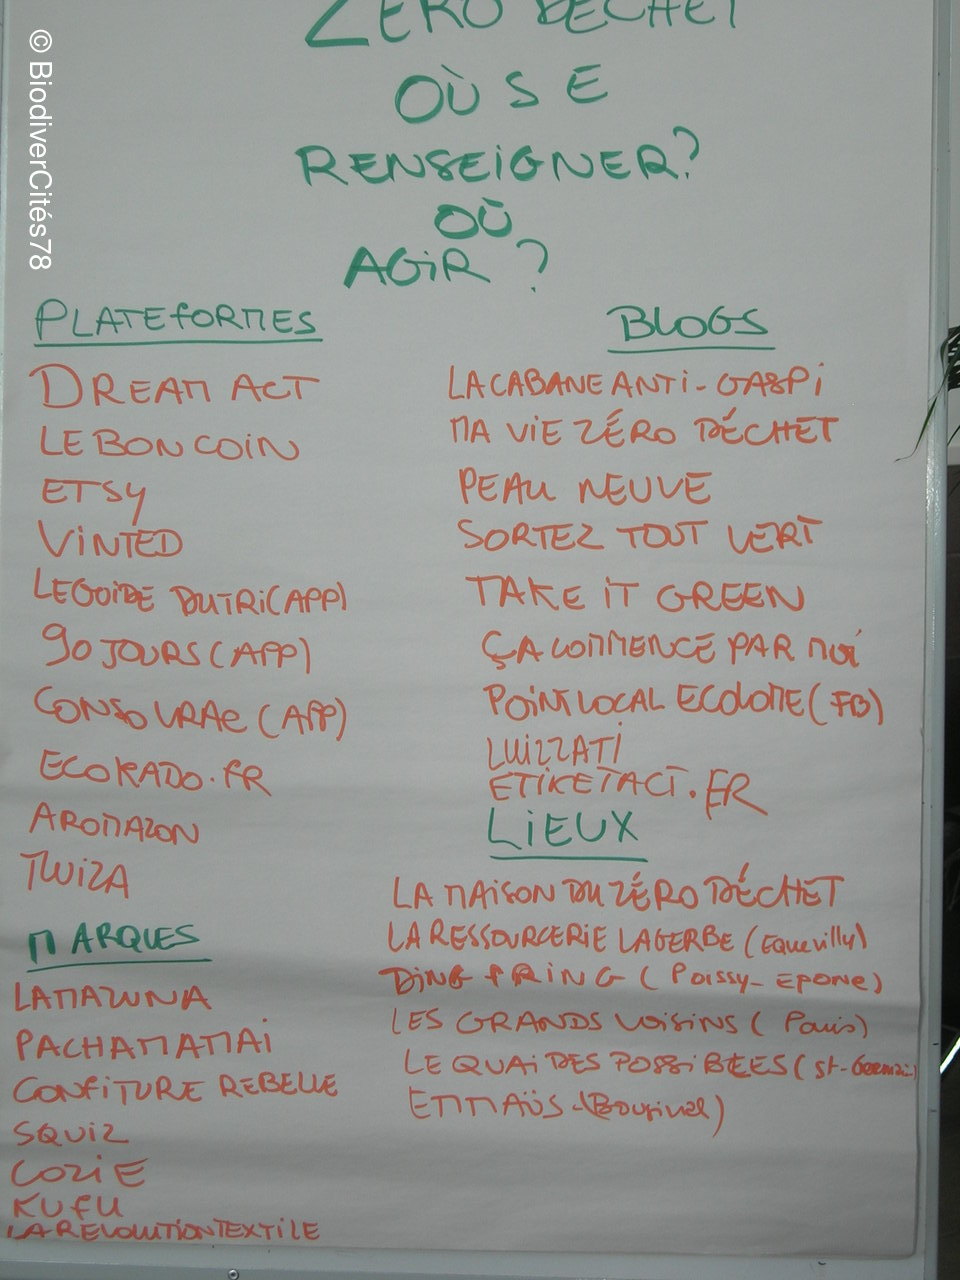 © BiodiverCités78
ZERO DÉCHET
OÙ SE
RENSEIGNER?
OÙ
AGIR ?
PLATEFORMES
DREAM ACT
LE BON COIN
ETSY
VINTED
LE GUIDE DU TRI (APP)
90 JOURS (APP)
CONSO VRAC (APP)
ECOKADO.FR
AROMAZON
TWIZA
MARQUES
LAMAZUNA
PACHAMAMAI
CONFITURE REBELLE
SQUIZ
COZIE
KUFU
LA REVOLUTION TEXTILE
BLOGS
LA CABANE ANTI-GASPI
MA VIE ZÉRO DÉCHET
PEAU NEUVE
SORTEZ TOUT VERT
TAKE IT GREEN
ÇA COMMENCE PAR MOI
POINT LOCAL ECOLOME (FB)
LUIZZATI
ETIKETACT.FR
LIEUX
LA MAISON DU ZÉRO DÉCHET
LA RESSOURCERIE LAGERBE (Equevilly)
DING FRING (Poissy-Epone)
LES GRANDS VOISINS (Paris)
LE QUAI DES POSSIBLES (St-Germain)
EMMAÜS-(Bougival)